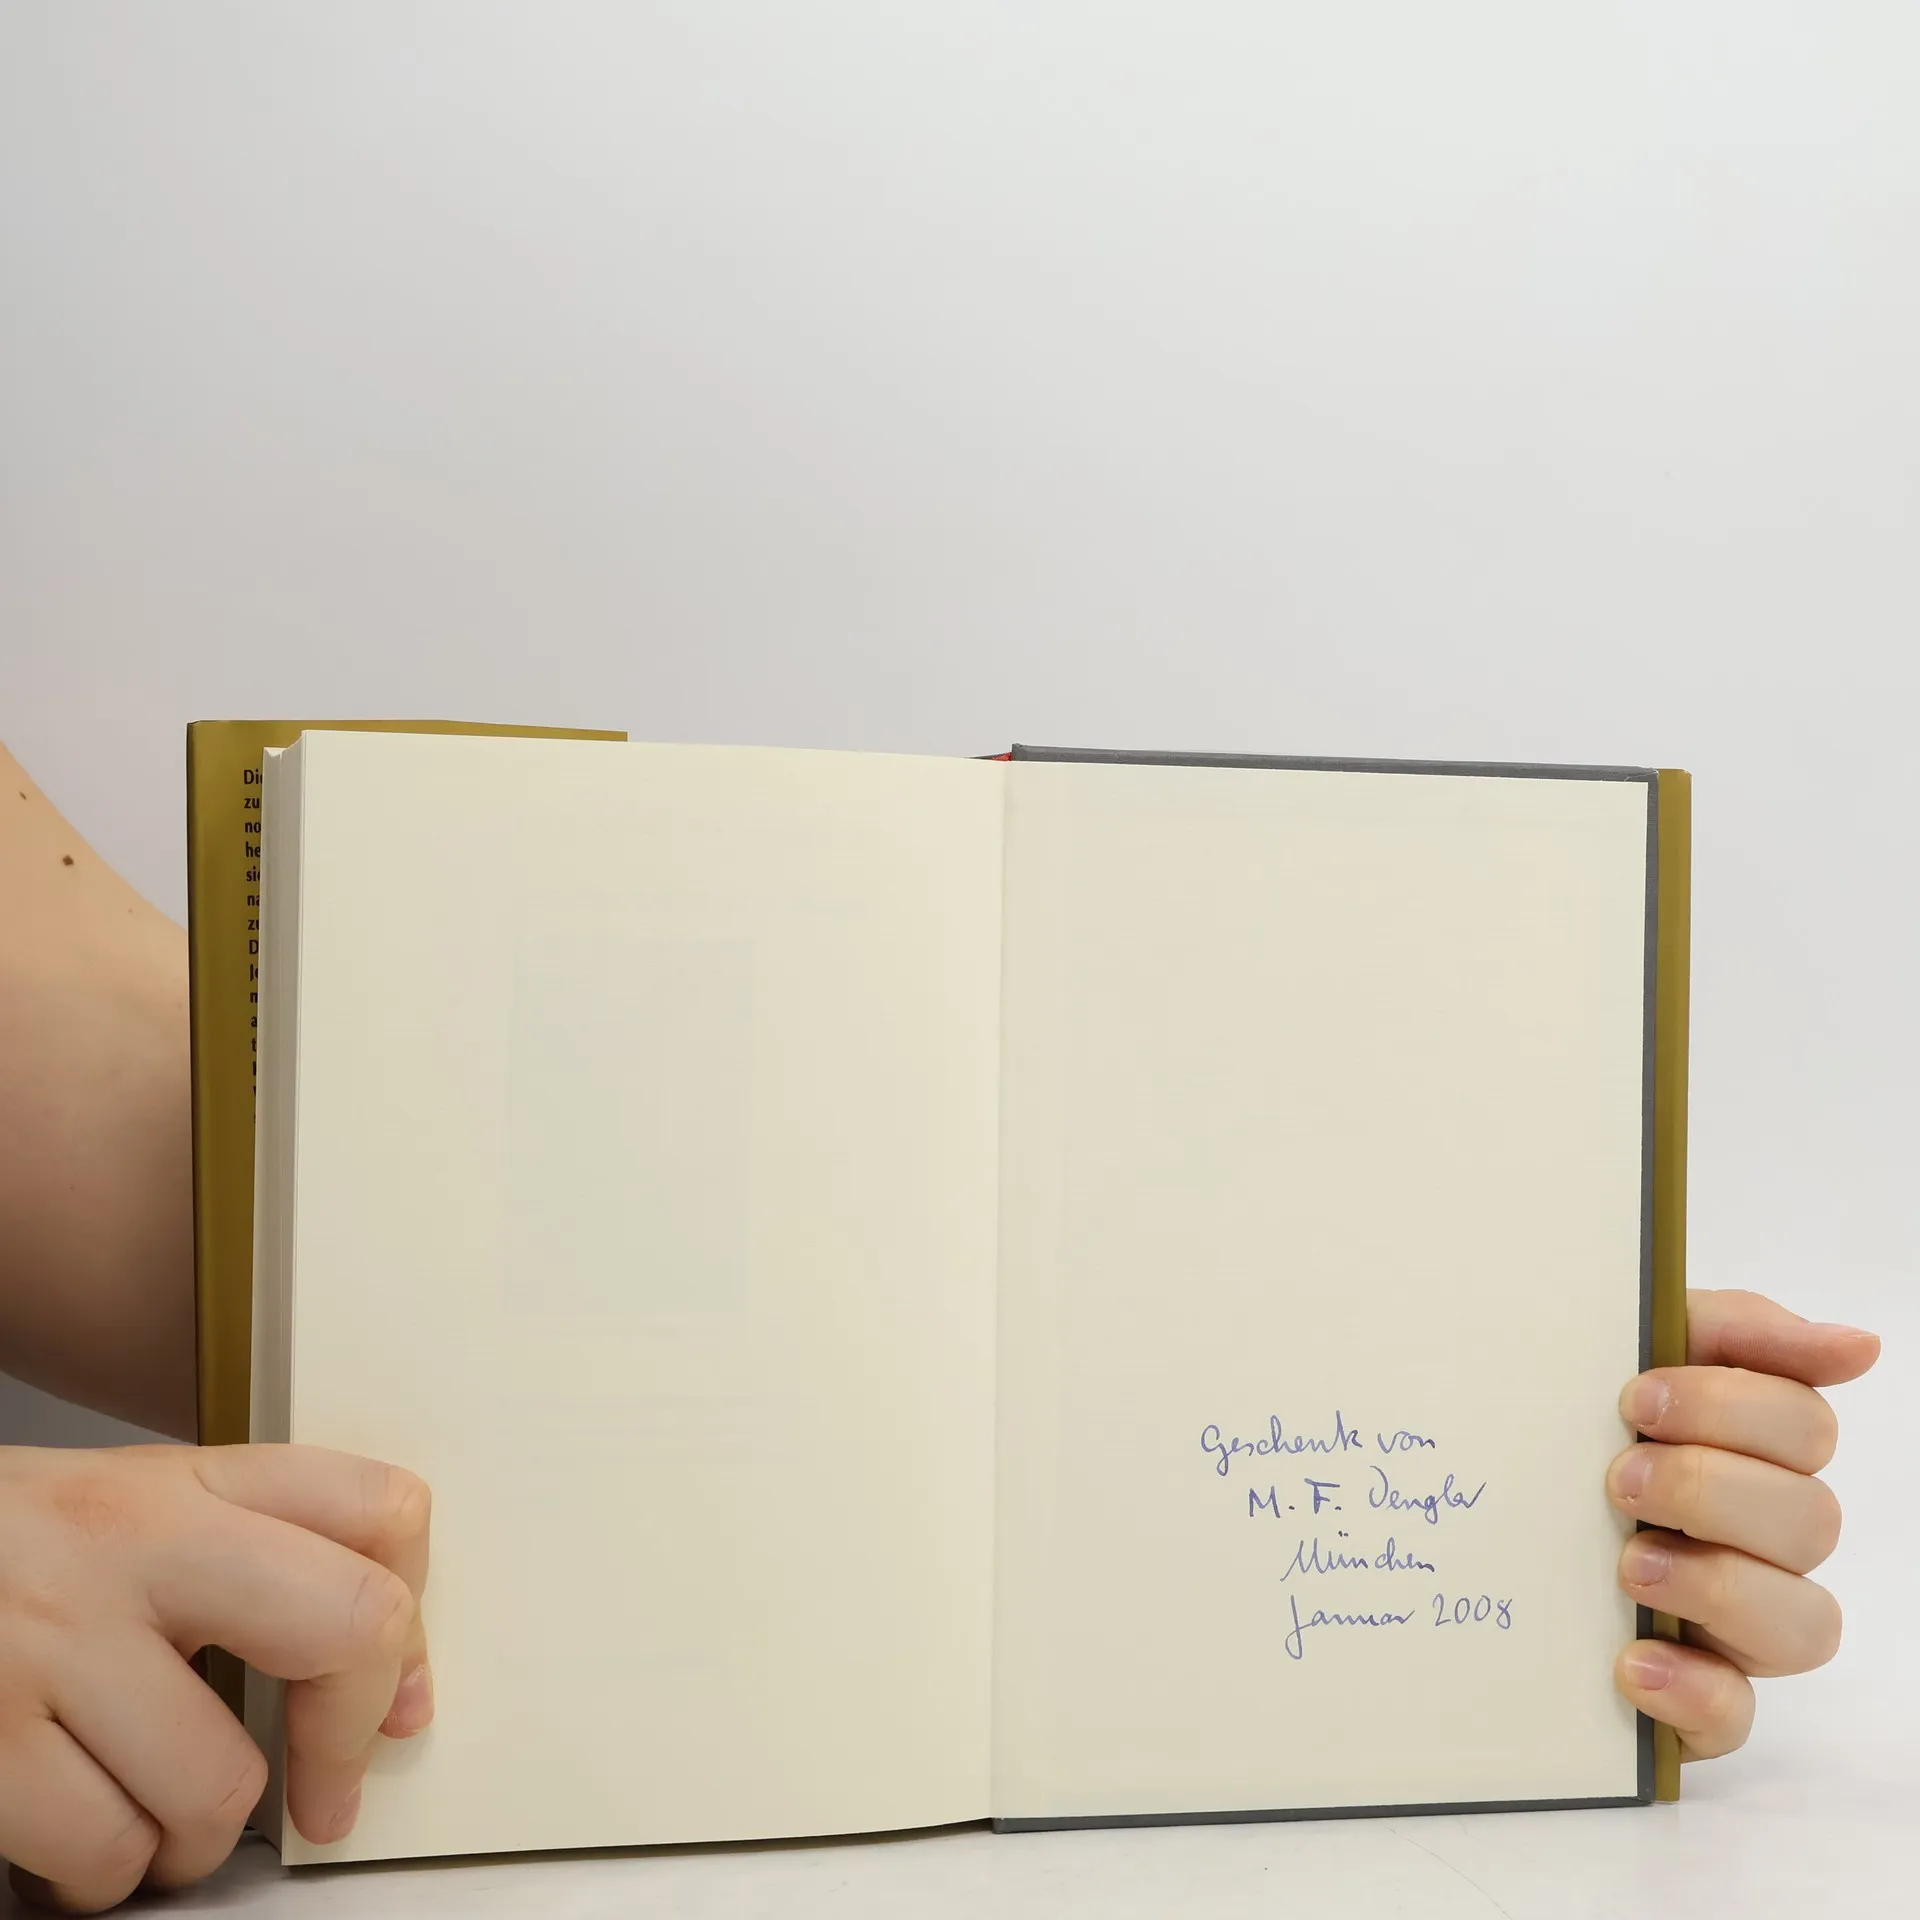 Di
zu
no
he
si
na
zu
D
Je
m
a
t
Geschenk von
M. F. Dengler
München
Januar 2008